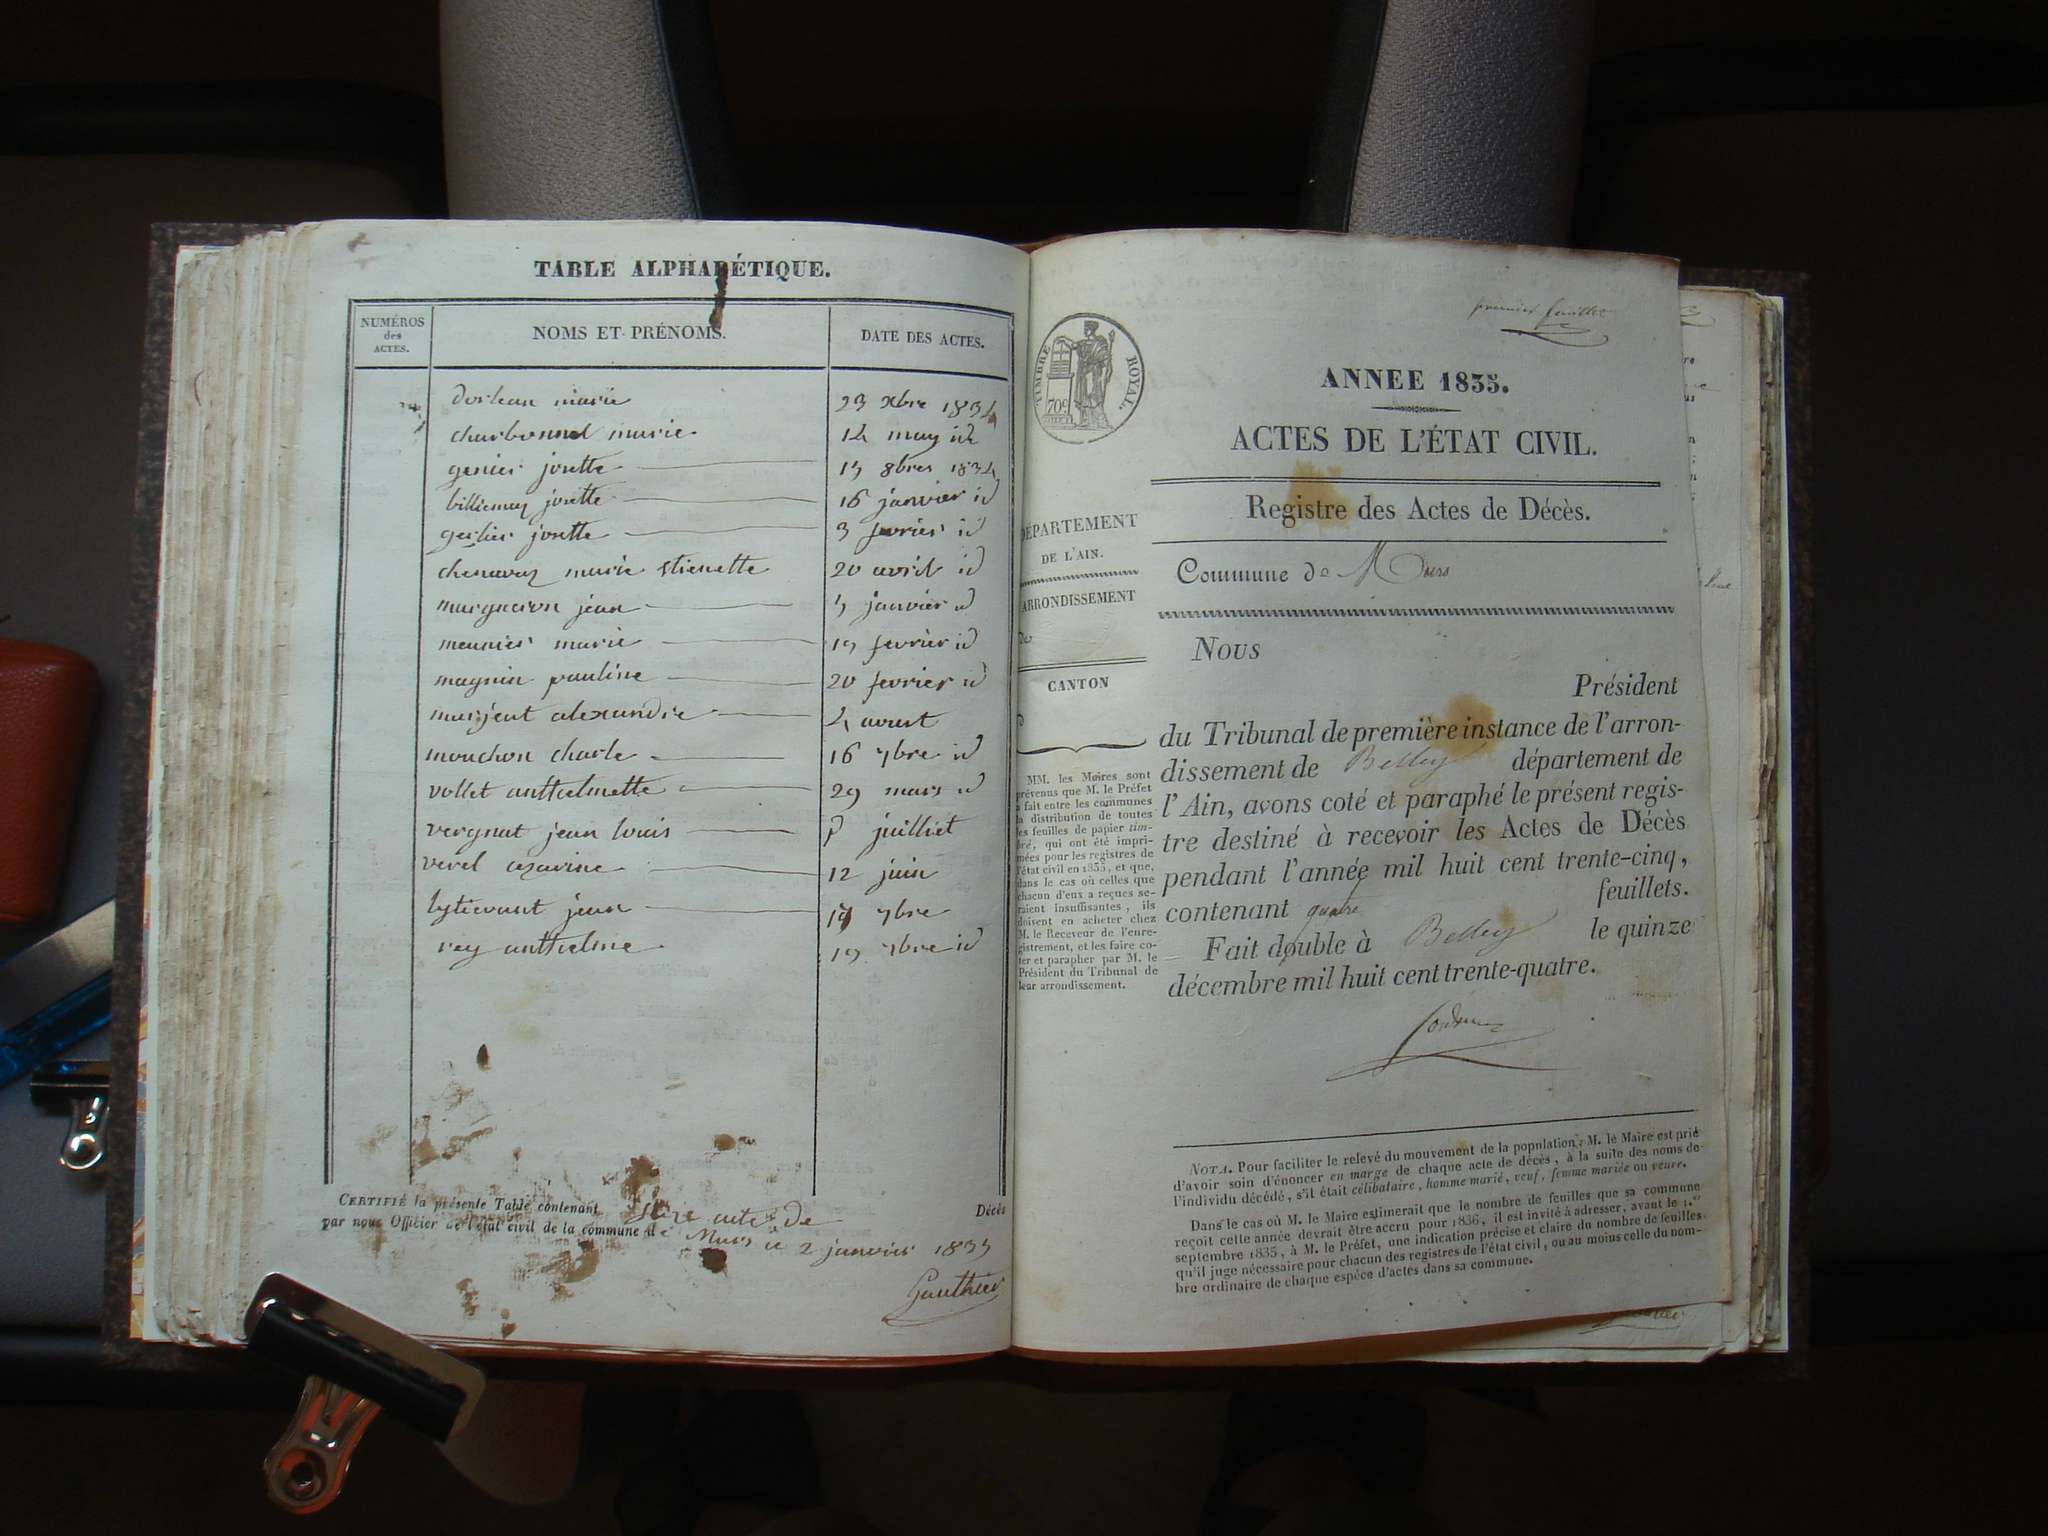 TABLE ALPHABÉTIQUE.
NUMÉROS
des
ACTES.
NOMS ET PRÉNOMS.
DATE DES ACTES.
dorlean marie 23 xbre 1834
charbonnel marie 14 may id
genier josette 15 8bres 1834
billiemaz josette 16 janvier id
gerlier josette 3 fevrier id
chenavaz marie stienette 20 avril id
margueron jean 5 janvier id
meunier marie 19 fevrier id
magnin pauline 20 fevrier id
marjeut alexandre 4 aoust
mouchon charle 16 7bre id
vollet anthelmette 29 mars id
vergnat jean louis juilliet
verel azarine 12 juin
jean 7bre
rey anthelme 19 7bre id
CERTIFIÉ la présente Table contenant seze acte de Décès
par nous Officier de l'état civil de la commune de Murs ce 2 janvier 1835
Gauthier
premier feuillet
TIMBRE ROYAL.
70c
ANNEE 1835.
ACTES DE L'ÉTAT CIVIL.
Registre des Actes de Décès.
DÉPARTEMENT
DE L'AIN.
Commune de Murs
ARRONDISSEMENT
de
CANTON
d
Nous
Président
du Tribunal de première instance de l'arron-
dissement de Belley département de
l'Ain, avons coté et paraphé le présent regis-
tre destiné à recevoir les Actes de Décès
pendant l'année mil huit cent trente-cinq,
contenant quatre feuillets.
Fait double à Belley le quinze
décembre mil huit cent trente-quatre.
MM. les Maires sont
prévenus que M. le Préfet
a fait entre les communes
la distribution de toutes
les feuilles de papier tim-
bré, qui ont été impri-
mées pour les registres de
l'état civil en 1835, et que,
dans le cas où celles que
chacun d'eux a reçues se-
raient insuffisantes, ils
doivent en acheter chez
M. le Receveur de l'enre-
gistrement, et les faire co-
ter et parapher par M. le
Président du Tribunal de
leur arrondissement.
NOTA. Pour faciliter le relevé du mouvement de la population, M. le Maire est prié
d'avoir soin d'énoncer en marge de chaque acte de décès, à la suite des noms de
l'individu décédé, s'il était célibataire, homme marié, veuf, femme mariée ou veuve.
Dans le cas où M. le Maire estimerait que le nombre de feuilles que sa commune
reçoit cette année devrait être accru pour 1836, il est invité à adresser, avant le 1.er
septembre 1835, à M. le Préfet, une indication précise et claire du nombre de feuilles
qu'il juge nécessaire pour chacun des registres de l'état civil, ou au moins celle du nom-
bre ordinaire de chaque espèce d'actes dans sa commune.